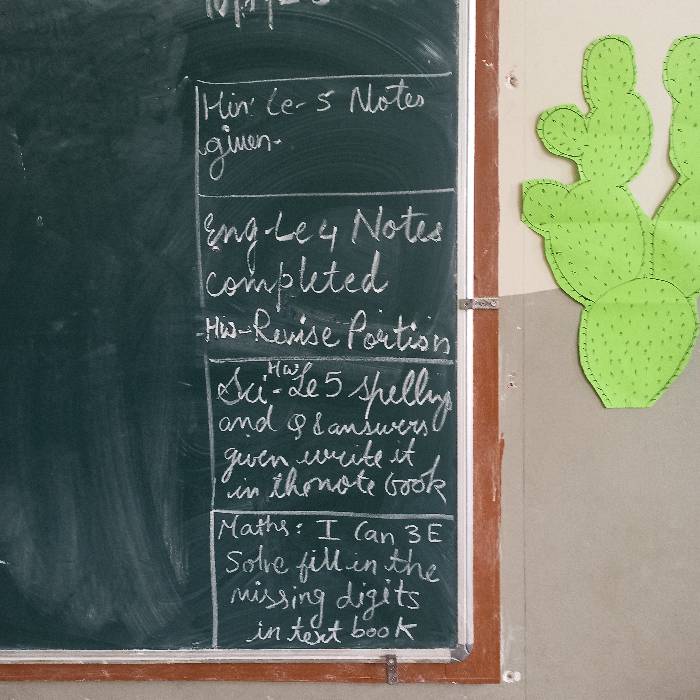 Hin: Le- 5 Notes
given.
Eng-Le 4 Notes
completed
HW-Revise Portion
Sci-HW Le 5 spelling
and Q & answers
given write it
in the note book
Maths: I Can 3 E
Solve fill in the
missing digits
in text book